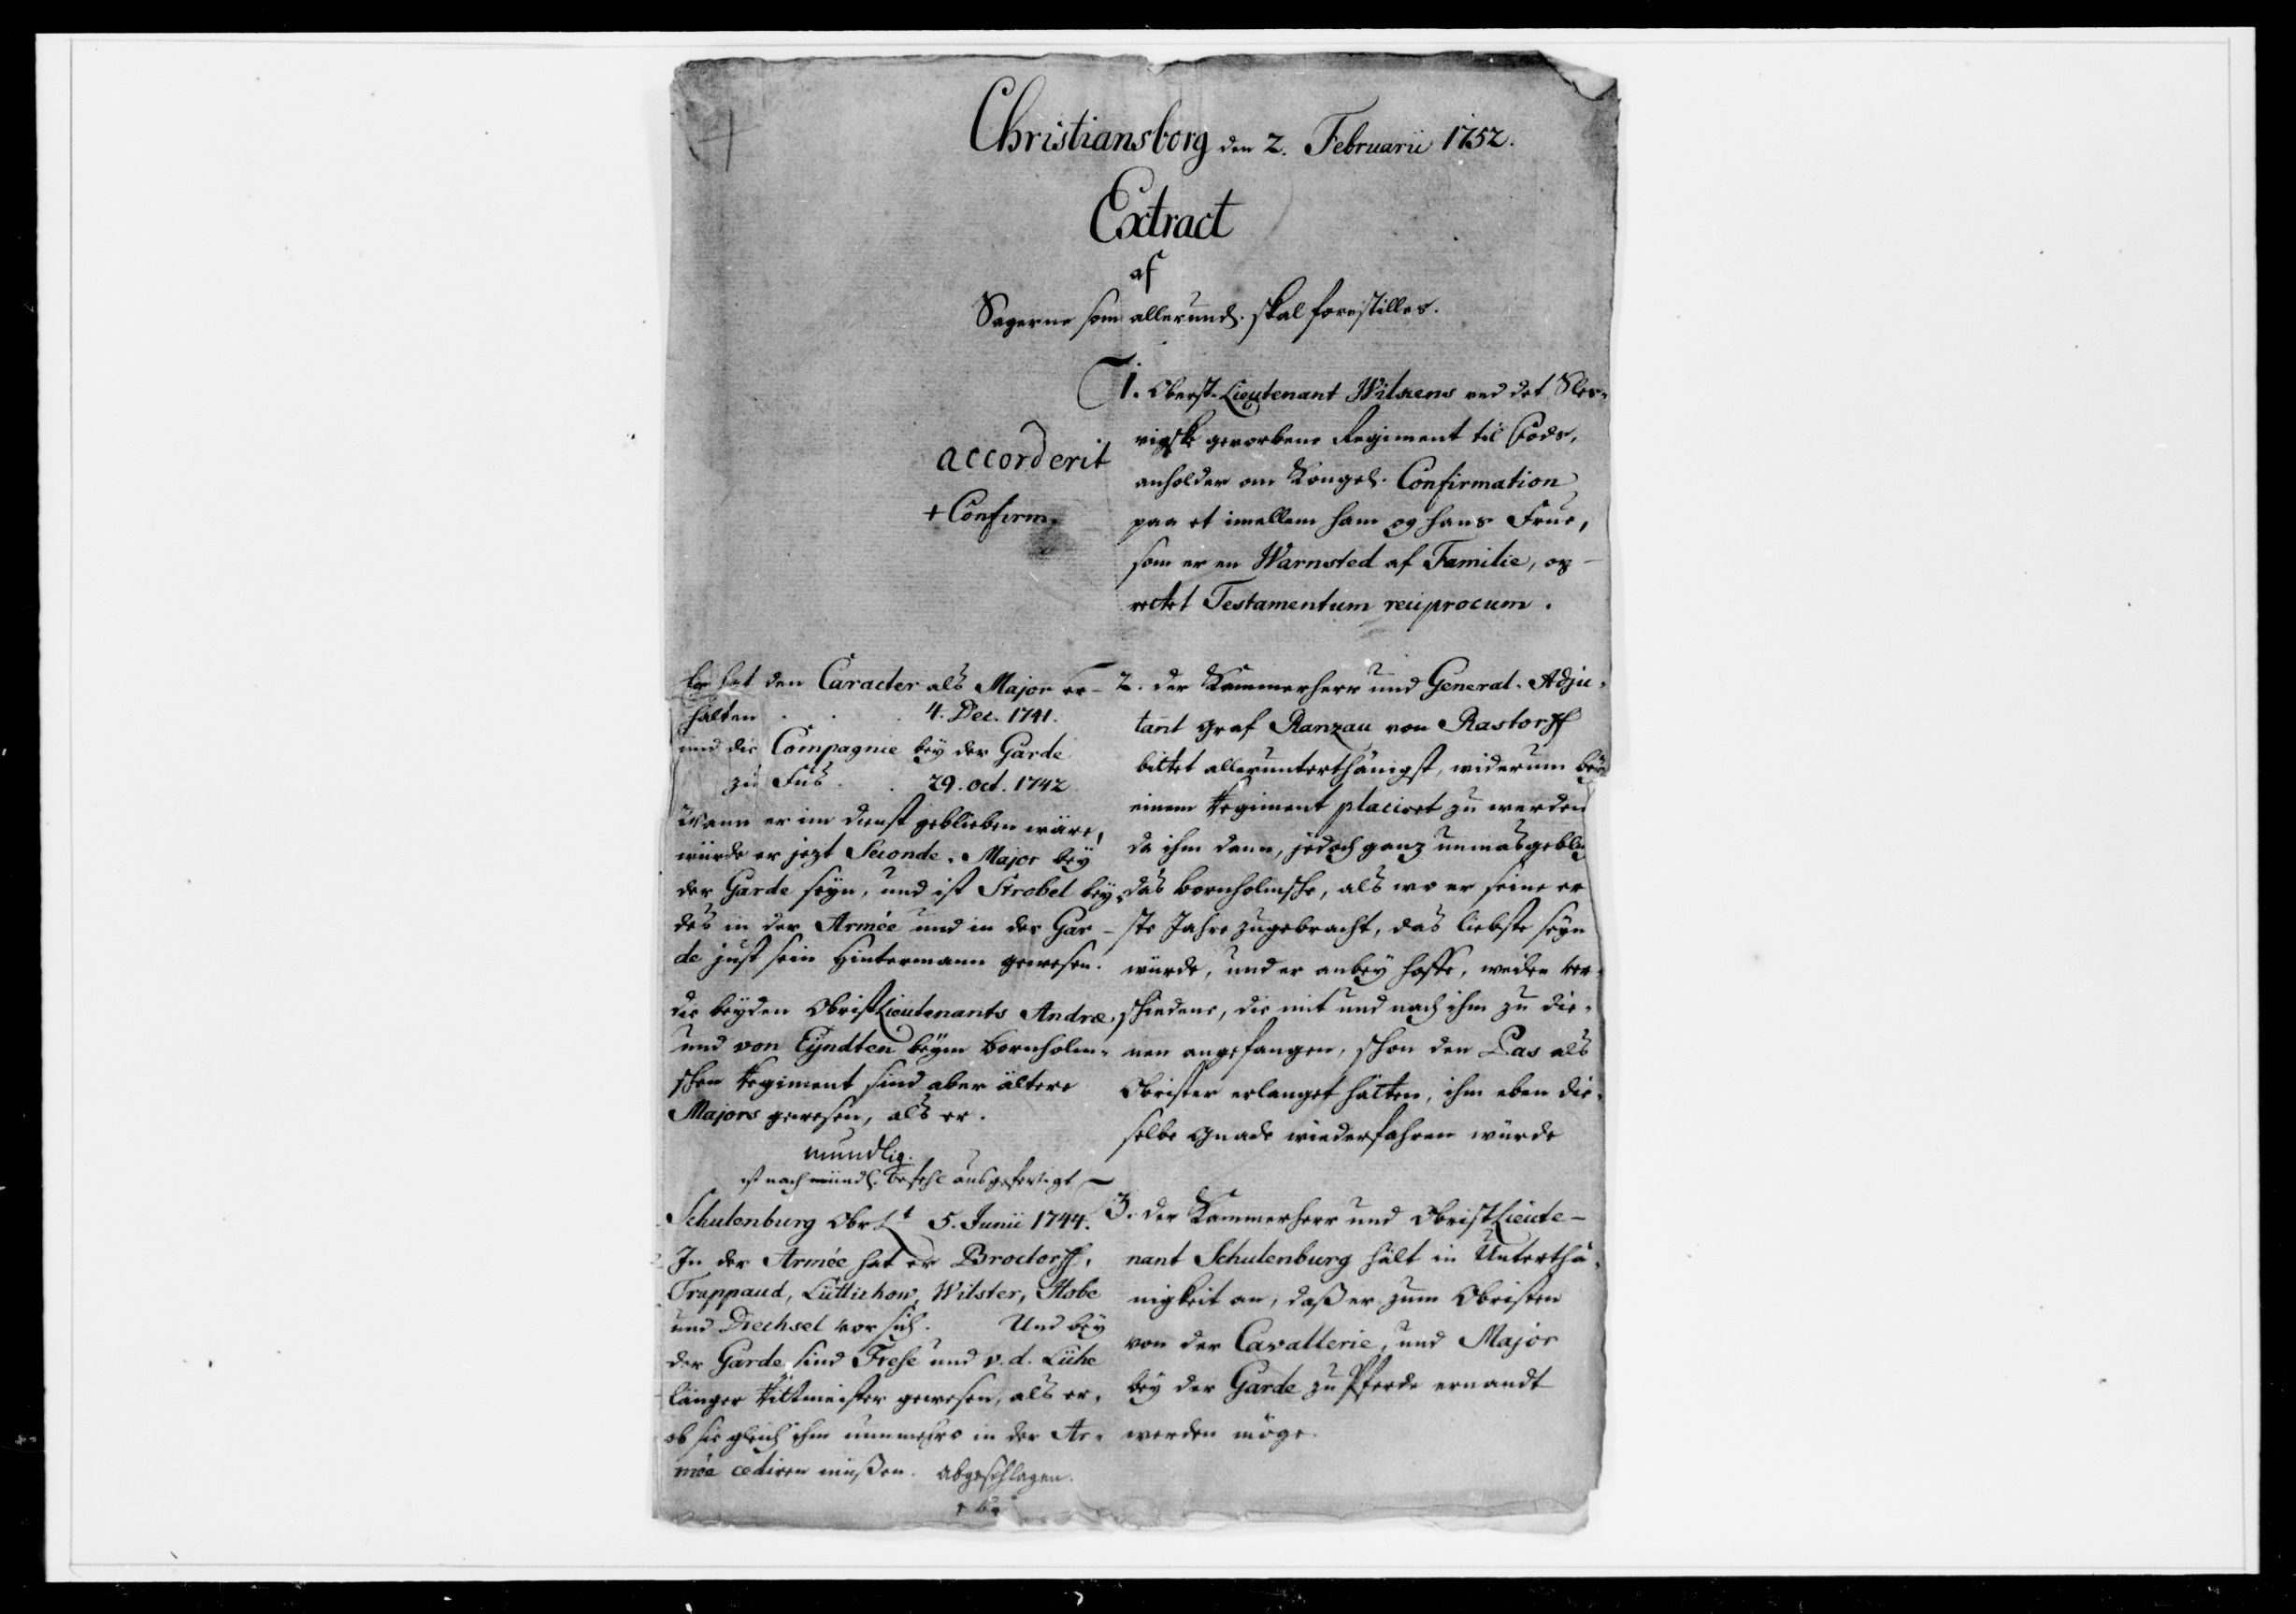 Christiansborg den 2. Februarii 1752.
Extract
af
Sagerne som allerund. skal forestilles.
1. Oberst-Lieutenant Wilkens ved det Sles-
vigske gevorbene Regiment til Fods,
anholder om Kongel. Confirmation
paa et imellem ham og hans Frue,
som er en Warnsted af Familie, op-
rettet Testamentum reciprocum.
accorderit
+ Confirm.
2. der Kammerherr und General-Adju-
tant Graf Ranzau von Rastorff
bittet allerunterthänigst, widerum bey
einem Regiment placiret zu werden
da ihm dann, jedoch ganz unmasgeblich
das bornholmsche, als wo er seine er
ste Jahre zugebracht, das liebste seyn
würde, und er anbey hoffe, weilen ver-
schiedene, die mit und nach ihm zu die-
nen angefangen, schon den Pas als
Obrister erlanget hätten, ihm eben die-
selbe Gnade wiederfahren würde
Er hat den Caracter als Major er-
halten . . . 4. Dec. 1741.
und die Compagnie bey der Garde
zu Fus . . 29. oct. 1742
Wann er im dienst geblieben wäre,
würde er jezt Seconde-Major bey
der Garde seyn, und ist Strobel bey-
des in der Armée und in der Gar-
de just sein Hintermann gewesen.
die beyden ObristLieutenants Andræ
und von Eyndten beym bornholm-
schen Regiment sind aber ältere
Majors gewesen, als er.
mundlig.
ist nach mündl. Befehl ausgefertigt
3. der Kammerherr und ObristLieute-
nant Schulenburg hält in Unterthä-
nigkeit an, daß er zum Obristen
von der Cavallerie, und Major
bey der Garde zu Pferde ernandt
werden möge.
Schulenburg Obr Lt 5. Junii 1744.
In der Armée hat er Brockdorff,
Trappaud, Lüttichow, Wilster, Hobe
und Drechsel vor sich. Und bey
der Garde sind Frese und v. d. Lühe
länger Rittmeister gewesen, als er,
ob sie gleich ihm nunmehro in der Ar-
mée cediren müßen. abgeschlagen.